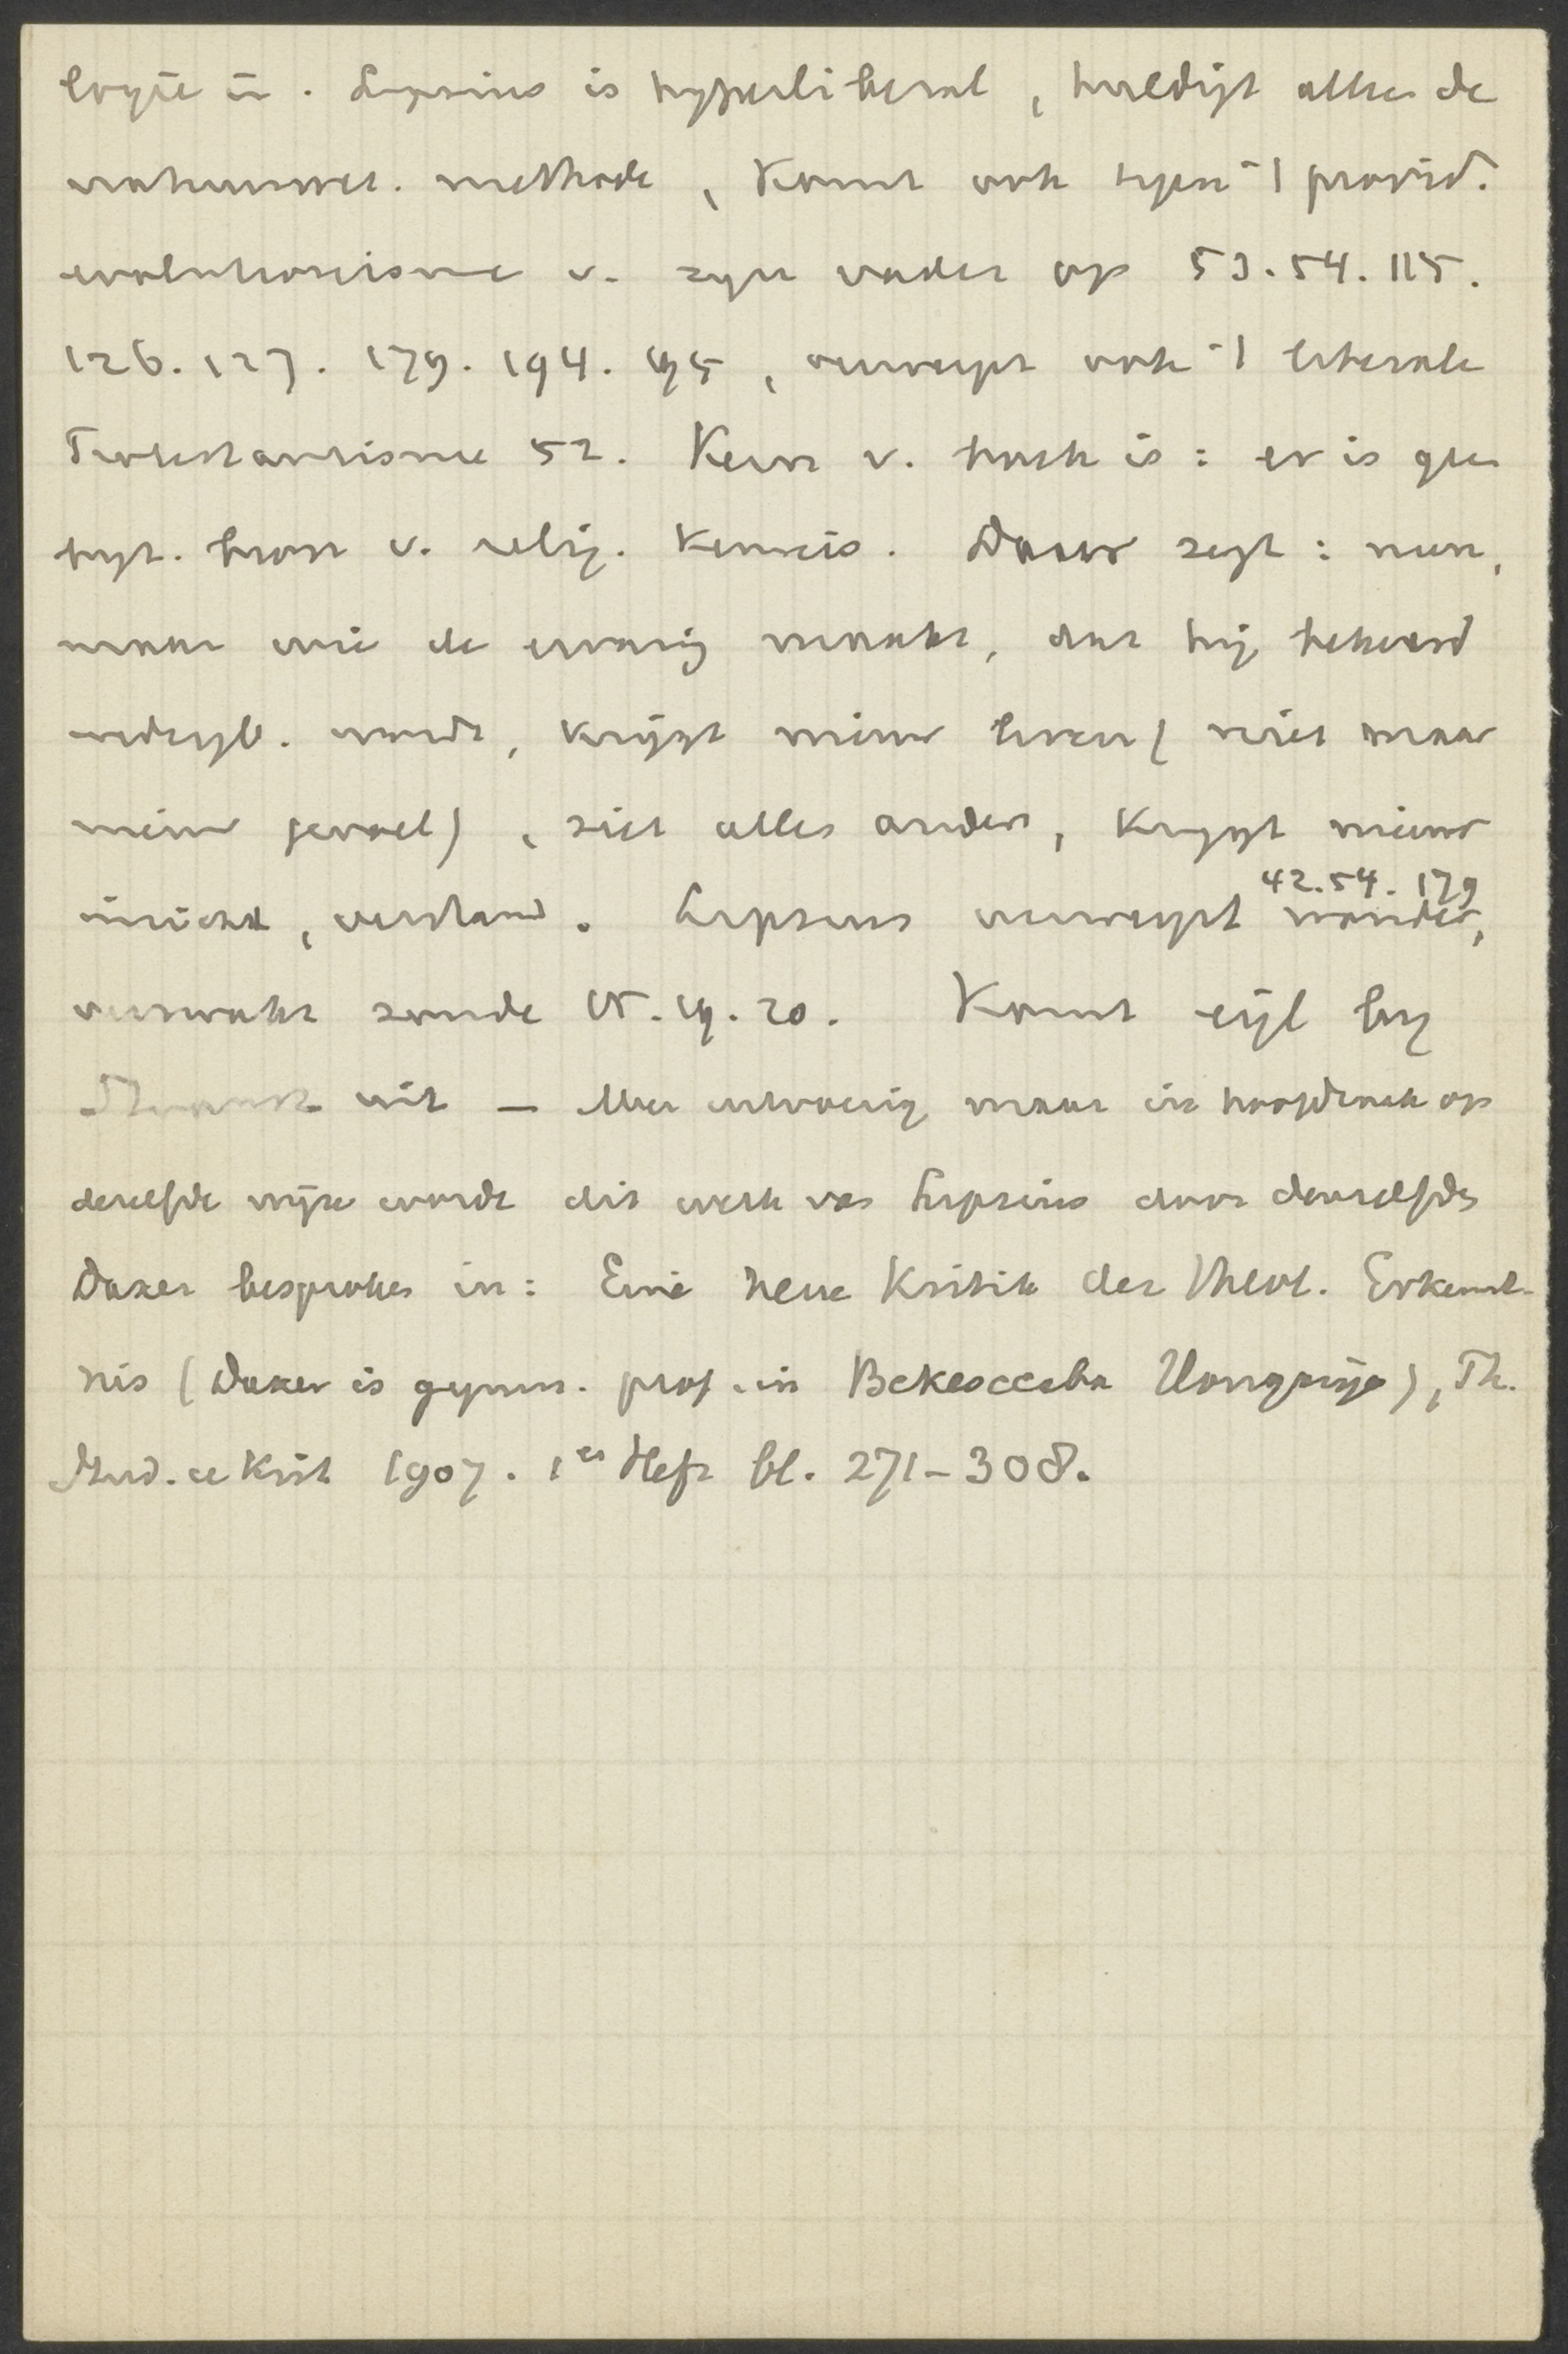 logie is. Lipsius is hyperliberal, huldigt alleen de
natuurwet. methode, komt ook tegen 't provid.
evolutionisme v. zijn vader op 53.54.115.
126.127. 179. 194. 195, verwerpt ook 't liberale
Protestantisme 52. Kern v. boek is: er is geen
bron v. relig. kennis. Daxer zegt: neen,
maar wie de ervaring maakt, dat hij bekeerd
wordt, krijgt nieuw leven (niet maar
nieuw gevoel), ziet alles anders, krijgt nieuw
inzicht, verstand. Lipsius verwerpt wonder,
42.54. 179
verzwakt zonde 15.19.20. Komt eigl bij
Strauss uit – Meer uitvoerig maar in hoofdzaak op
dezelfde wijze wordt dit werk van Lipsius door denzelfden
Daxer besproken in: Eine neue Kritik der theol. Erkennt-
nis (Daxer is gymn. prof. in Bekescsaba Hongarije), Th.
Stud. u Krit 1907. 1es Heft bl. 271–308.